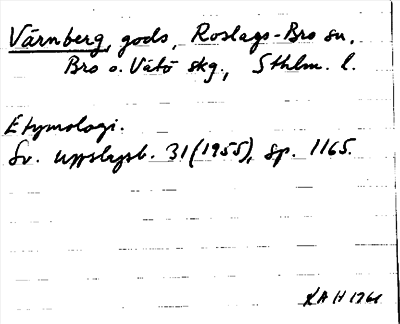 Värnberg, gods, Roslags-Bro sn.
Bro o. Vätö skg., Sthlm. l.
Etymologi.
Sv. uppslagsb. 31 (1955), sp. 1165.
KAH 1961